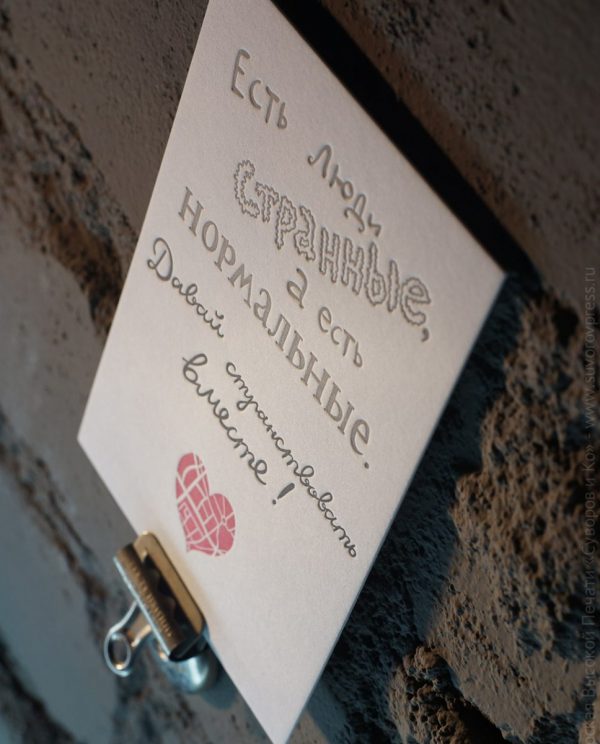 Есть люди
странные,
а есть
нормальные.
Давай странствовать
вместе!
Высокой Печати «Суворов и Ко» - www.suvorovpress.ru